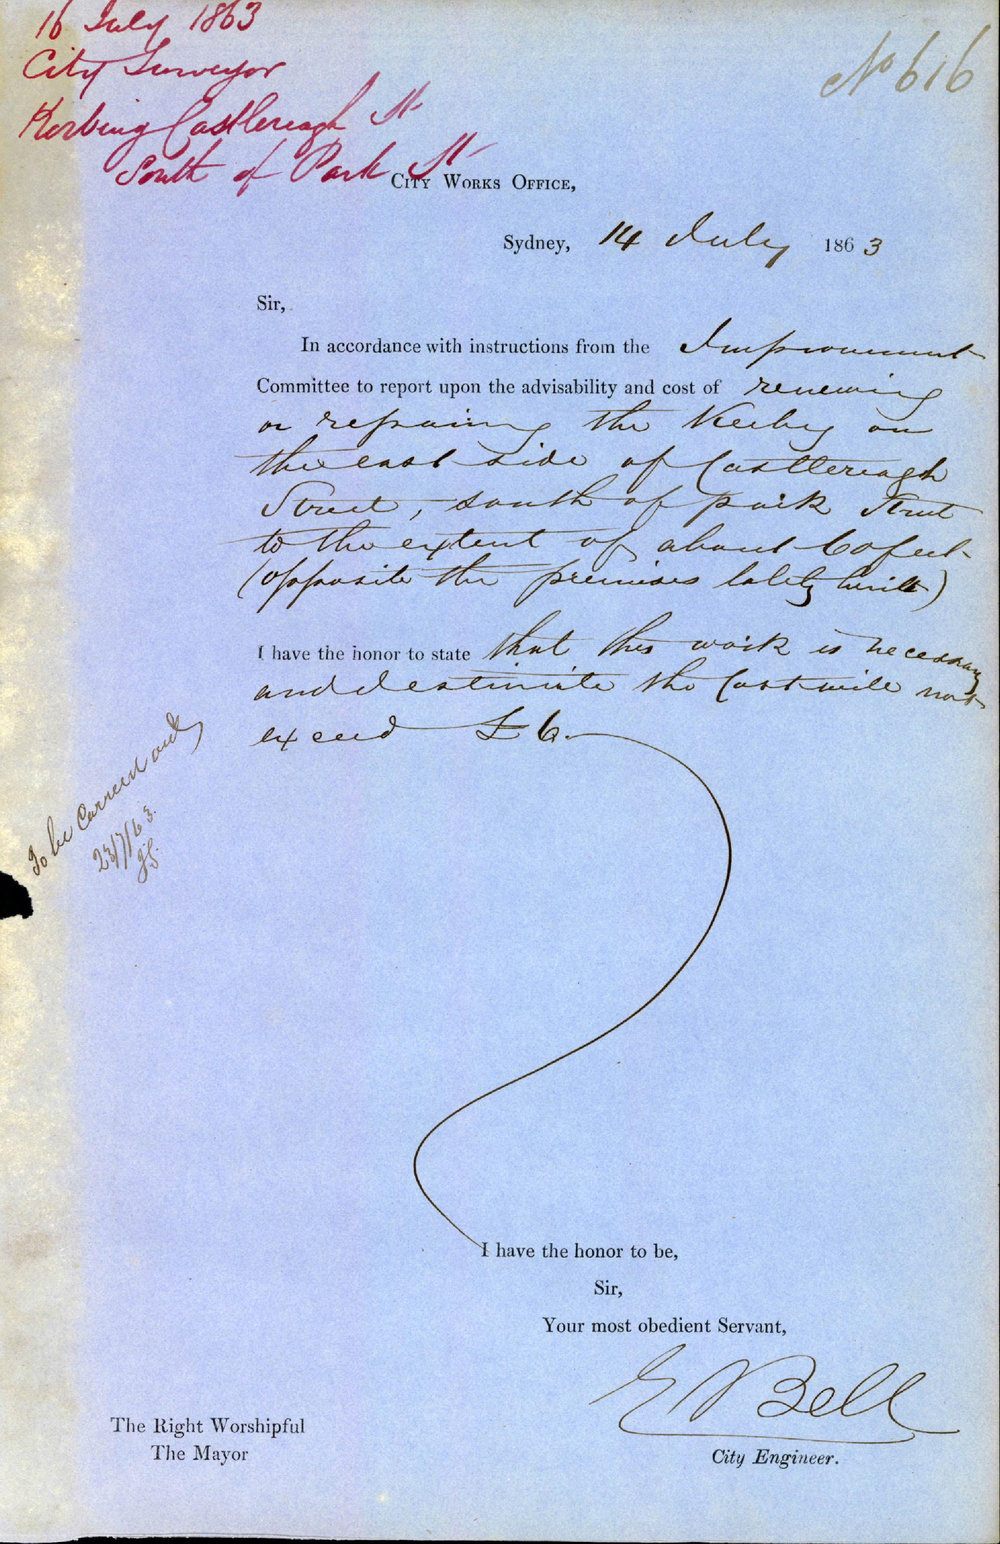 16 July 1863
City Surveyor
Kerbing Castlereagh St
South of Park St
No 616
City Works Office,
Sydney, 14 July 1863
Sir,
In accordance with instructions from the Improvement
Committee to report upon the advisability and cost of renewing
or repairing the Kerbg on
the east side of Castlereagh
Street, south of park Street
to the extent of about 60 feet
(opposite the premises lately built)
I have the honor to state that this work is necessary
and I estimate the Cost will not
exceed £6.
To be Carried out
23/7/63.
I have the honor to be,
Sir,
Your most obedient Servant,
E Bell
City Engineer.
The Right Worshipful
The Mayor